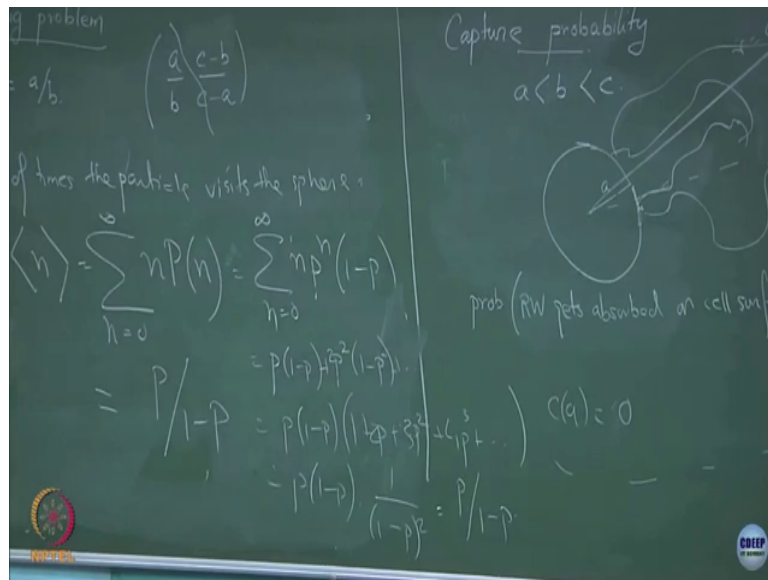 g problem
= a/b. (a/b c-b/c-a)
of times the particle visits the sphere =
⟨n⟩ = ∑_{n=0}^{∞} nP(n) = ∑_{n=0}^{∞} np^n(1-p)
= p(1-p)+2p²(1-p)+..
= P/1-P = p(1-p)(1+2p+3p²+4p³+...)
= p(1-p). 1/(1-p)² = P/1-p.
Capture probability
a<b<c.
a
prob (RW gets absorbed on cell surf
c(a) = 0
NPTEL
CDEEP
IIT BOMBAY